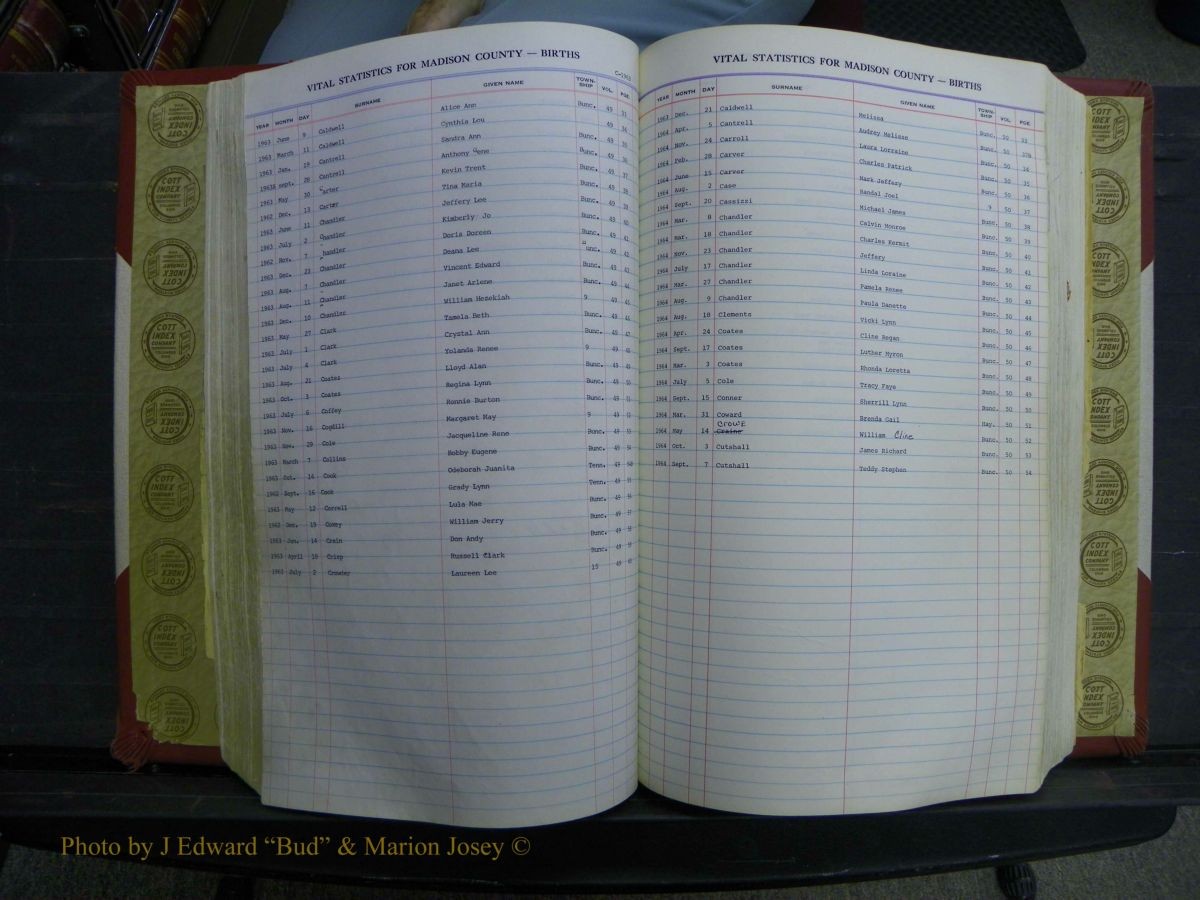 VITAL STATISTICS FOR MADISON COUNTY — BIRTHS
C-1963
YEAR MONTH DAY SURNAME GIVEN NAME TOWN-SHIP VOL. PGE.
1963 June 9 Caldwell Alice Ann Bunc. 49
1963 March 11 Caldwell Cynthia Lou 49
1963 Jan. 19 Cantrell Sandra Ann Bunc. 49
Sept. 28 Cantrell Anthony Gene Bunc. 49
1963 May 30 Carter Kevin Trent Bunc. 49
1962 Dec. 13 Carter Tina Maria Bunc. 49
1963 June 11 Chandler Jeffery Lee Bunc. 49
1963 July 2 Chandler Kimberly Jo Bunc. 49
1962 Nov. 7 Chandler Doris Doreen Bunc. 49
1963 Dec. 23 Chandler Deana Lee Bunc. 49
1963 Aug. 7 Chandler Vincent Edward Bunc. 49
1963 Aug. 11 Chandler Janet Arlene Bunc. 49
1963 Dec. 10 Chandler William Hezekiah 9 49
1963 May 27 Clark Tamela Beth Bunc. 49
1963 July 1 Clark Crystal Ann Bunc. 49
1963 July 4 Clark Yolanda Renee 9 49
1963 Aug. 21 Coates Lloyd Alan Bunc. 49
1963 Oct. 3 Coates Regina Lynn Bunc. 49
1963 July 6 Coffey Ronnie Burton Bunc. 49
1963 Nov. 16 Cogdill Margaret May 9 49
1963 Nov. 29 Cole Jacqueline Rene Bunc. 49
1963 March 7 Collins Bobby Eugene Bunc. 49
1963 Oct. 14 Cook Odeborah Juanita Tenn. 49
1962 Sept. 16 Cook Grady Lynn Tenn. 49
1963 May 12 Correll Lula Mae Bunc. 49
1962 Dec. 19 Coxey William Jerry Bunc. 49
1963 Jan. 14 Crain Don Andy Bunc. 49
1963 April 18 Crisp Russell Clark Bunc. 49
1963 July 2 Crowder Laureen Lee 15 49
VITAL STATISTICS FOR MADISON COUNTY — BIRTHS
YEAR MONTH DAY SURNAME GIVEN NAME TOWN-SHIP VOL. PGE.
1963 Dec. 21 Caldwell Melissa Bunc. 50 33
1964 Apr. 5 Cantrell Audrey Melisse Bunc. 50 37B
1964 Nov. 24 Carroll Laura Lorraine Bunc. 50 34
1964 Feb. 28 Carver Charles Patrick Bunc. 50 35
1964 June 15 Carver Mark Jeffery Bunc. 50 36
1964 Aug. 2 Case Randal Joel 9 50 37
1964 Sept. 20 Cassizzi Michael James Bunc. 50 38
1964 Mar. 8 Chandler Calvin Monroe Bunc. 50 39
1964 Mar. 18 Chandler Charles Kermit Bunc. 50 40
1964 Nov. 23 Chandler Jeffery Bunc. 50 41
1964 July 17 Chandler Linda Loraine Bunc. 50 42
1964 Mar. 27 Chandler Pamela Renee Bunc. 50 43
1964 Aug. 9 Chandler Paula Danette Bunc. 50 44
1964 Aug. 18 Clements Vicki Lynn Bunc. 50 45
1964 Apr. 24 Coates Cline Regan Bunc. 50 46
1964 Sept. 17 Coates Luther Myron Bunc. 50 47
1964 Mar. 3 Coates Rhonda Loretta Bunc. 50 48
1964 July 5 Cole Tracy Faye Bunc. 50 49
1964 Sept. 15 Conner Sherrill Lynn Bunc. 50 50
1964 Mar. 31 Coward Brenda Gail Hay. 50 51
1964 May 14 Craine Crowe William Cline Bunc. 50 52
1964 Oct. 3 Cutshall James Richard Bunc. 50 53
1964 Sept. 7 Cutshall Teddy Stephen Bunc. 50 54
COTT INDEX COMPANY
Photo by J Edward “Bud” & Marion Josey ©